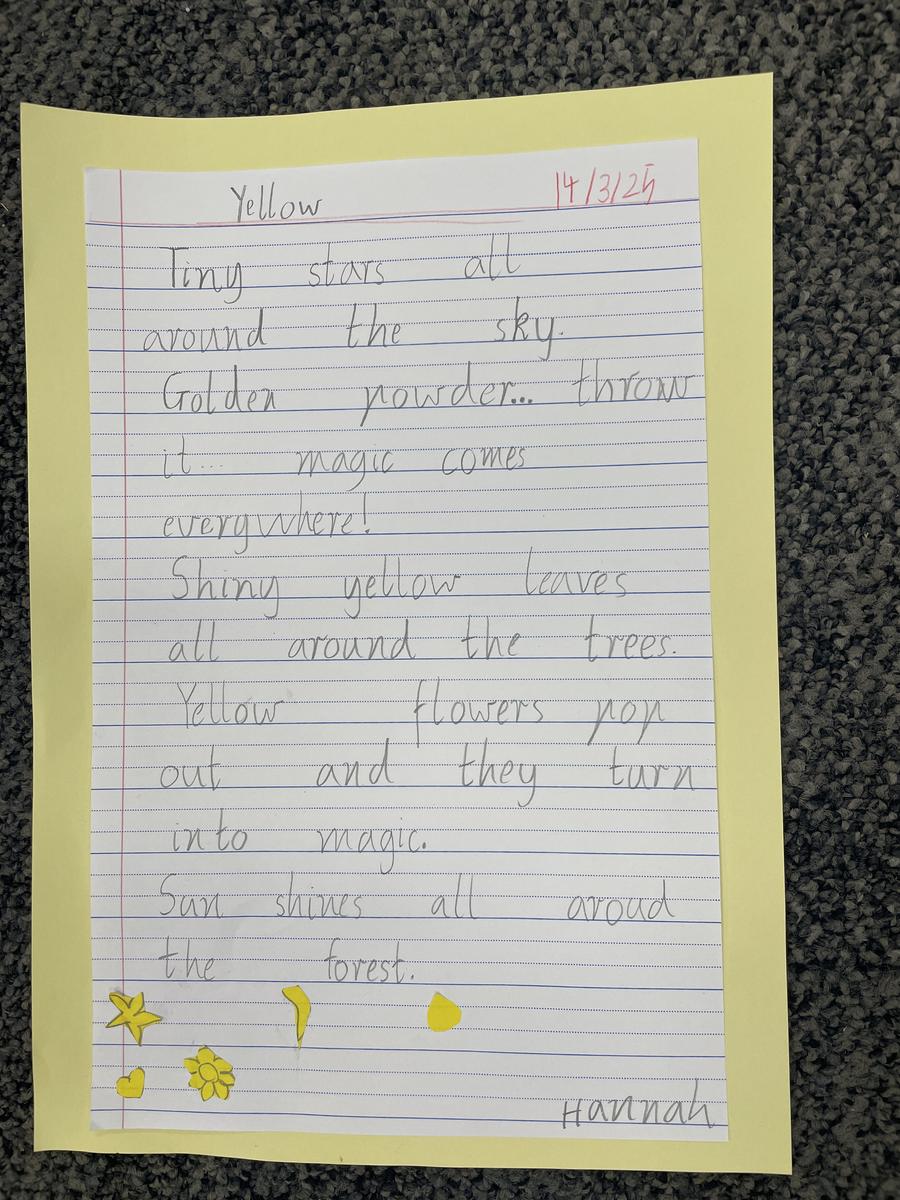 Yellow 14/3/25
Tiny stars all
around the sky.
Golden powder... throw
it... magic comes
everywhere!
Shiny yellow leaves
all around the trees.
Yellow flowers pop
out and they turn
into magic.
Sun shines all aroud
the forest.
Hannah